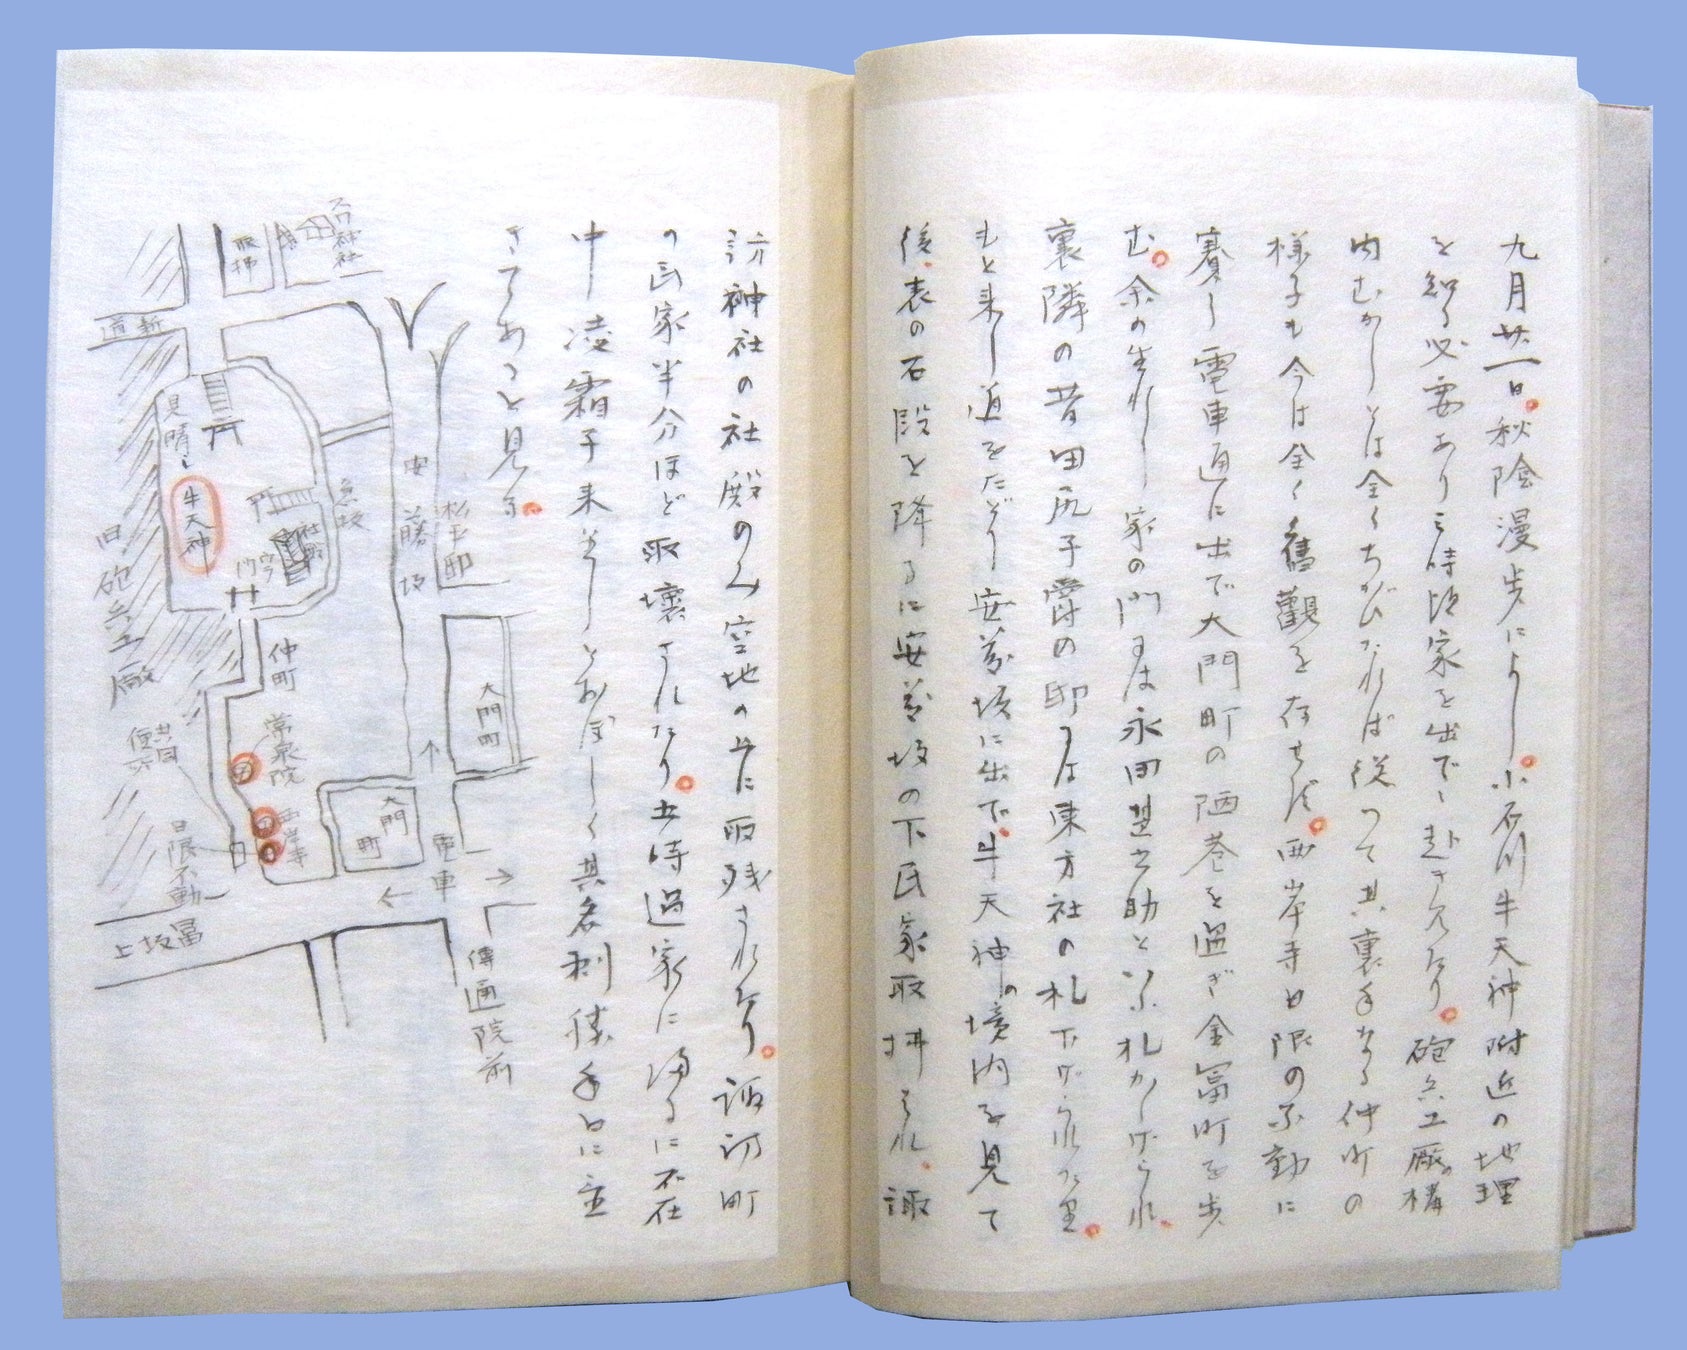 九月廿一日。秋陰漫歩によし。小石川牛天神附近の地理
を知る必要あり三時頃家を出で、赴きたり。砲兵工廠の構
内むかしとは全くちがひたれば従つて其裏手なる仲町の
様子も今は全く舊觀を存せず。西岸寺日限の不動に
賽し電車通に出で大門町の陋巷を過ぎ金冨町を歩
む。余の生れし家の門には永田甚之助といふ札かゝげられ、
裏隣の昔田尻子爵の邸には東方社の札下げられたり。
もと来し道をたどり安藤坂に出で、牛天神の境内を見て
後、表の石段を降るに安藤坂の下民家取拂はれ、諏
訪神社の社殿のみ空地の中に取残されたり。諏訪町
の民家半分ほど取壊されたり。五時過家に帰るに不在
中凌霜子来りしとおぼしく其名刺
さてあるを見る。
スワ神社
取拂
新道
見晴し
牛天神
急坂
社殿
門
安藤坂
杉下邸
旧砲兵工廠
仲町
常泉院
共同便所
西岸寺
日限不動
大門町
大門町
電車
冨坂上
傳通院前